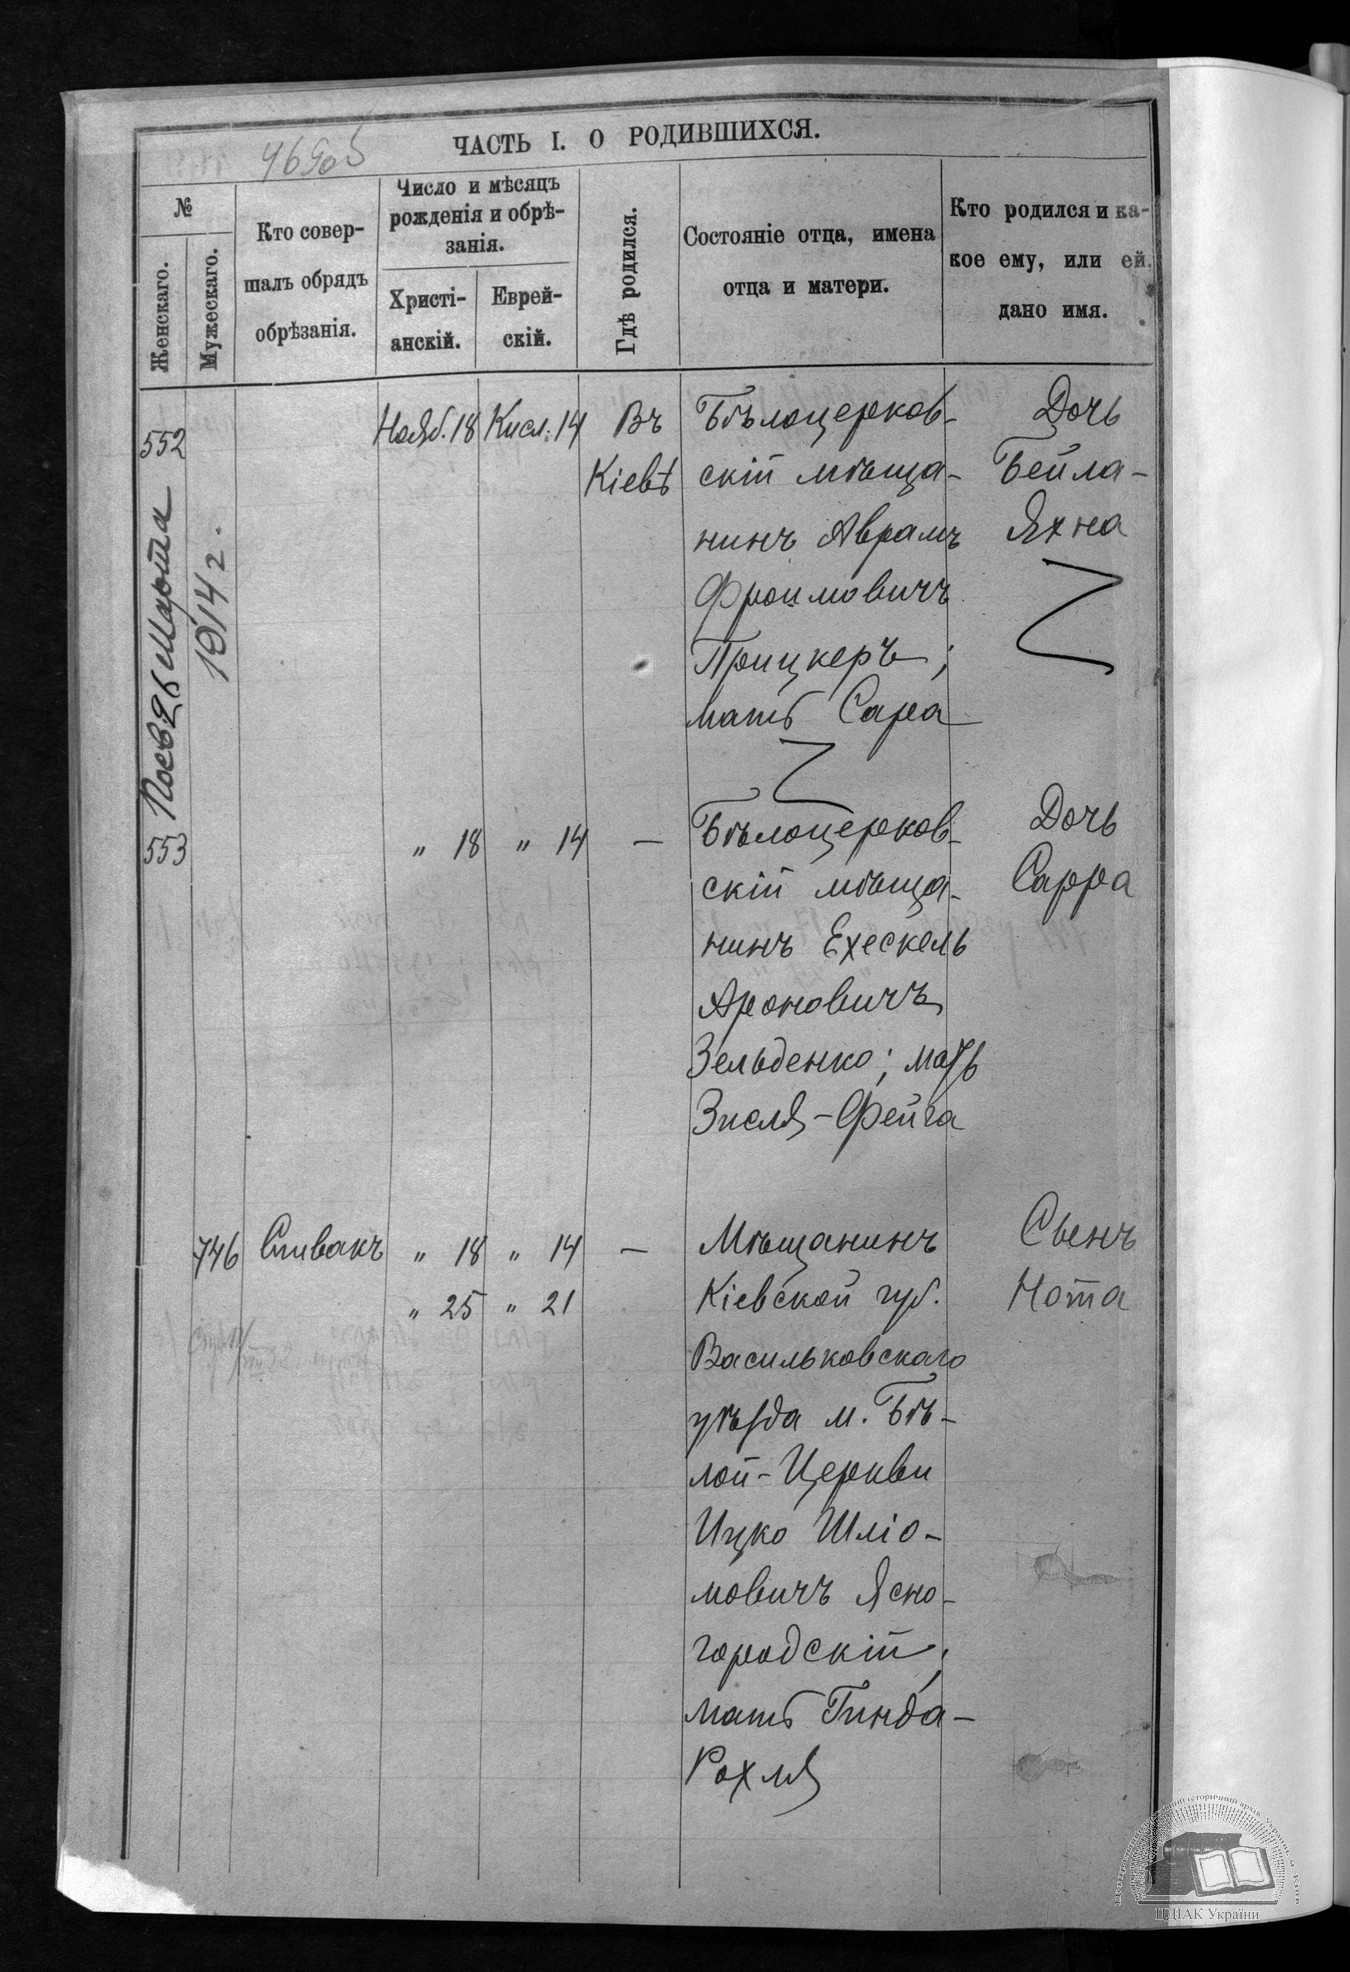 ЧАСТЬ I. О РОДИВШИХСЯ.
№
Женскаго.
Мужескаго.
Кто совер-
шалъ обрядъ
обрѣзанія.
Число и мѣсяцъ
рожденія и обрѣ-
занія.
Христі-
анскій.
Еврей-
скій.
Гдѣ родился.
Состояніе отца, имена
отца и матери.
Кто родился и ка-
кое ему, или ей.
дано имя.
552
Нояб. 18 Кисл. 14
Въ
Кіевѣ
Бѣлоцерков-
скій мѣща-
нинъ Аврамъ
Фроимовичъ
Прицкеръ;
мать Сара
Дочь
Бейла-
Яхна
26 Марта
1914 г.
553
" 18 " 14 —
Бѣлоцерков-
скій мѣща-
нинъ Ехескель
Ароновичъ
Зельденко; мать
Зисля-Фейга
Дочь
Сарра
746 Спивакъ " 18 " 14 —
" 25 " 21
Мѣщанинъ
Кіевской губ.
Васильковскаго
уѣзда м. Бѣ-
лой-Церкви
Ицко Шліо-
мовичъ Ясно-
городскій;
мать Гинда-
Рохля
Сынъ
Нота
ЦДІАК України